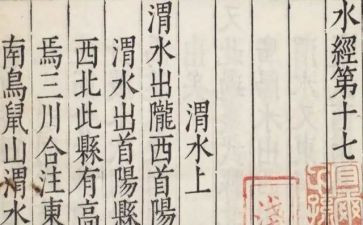 水經第十七
渭水上
渭水出隴西首陽
渭水出首陽縣
西北此縣有高
焉三川合注東
南鳥鼠山渭水